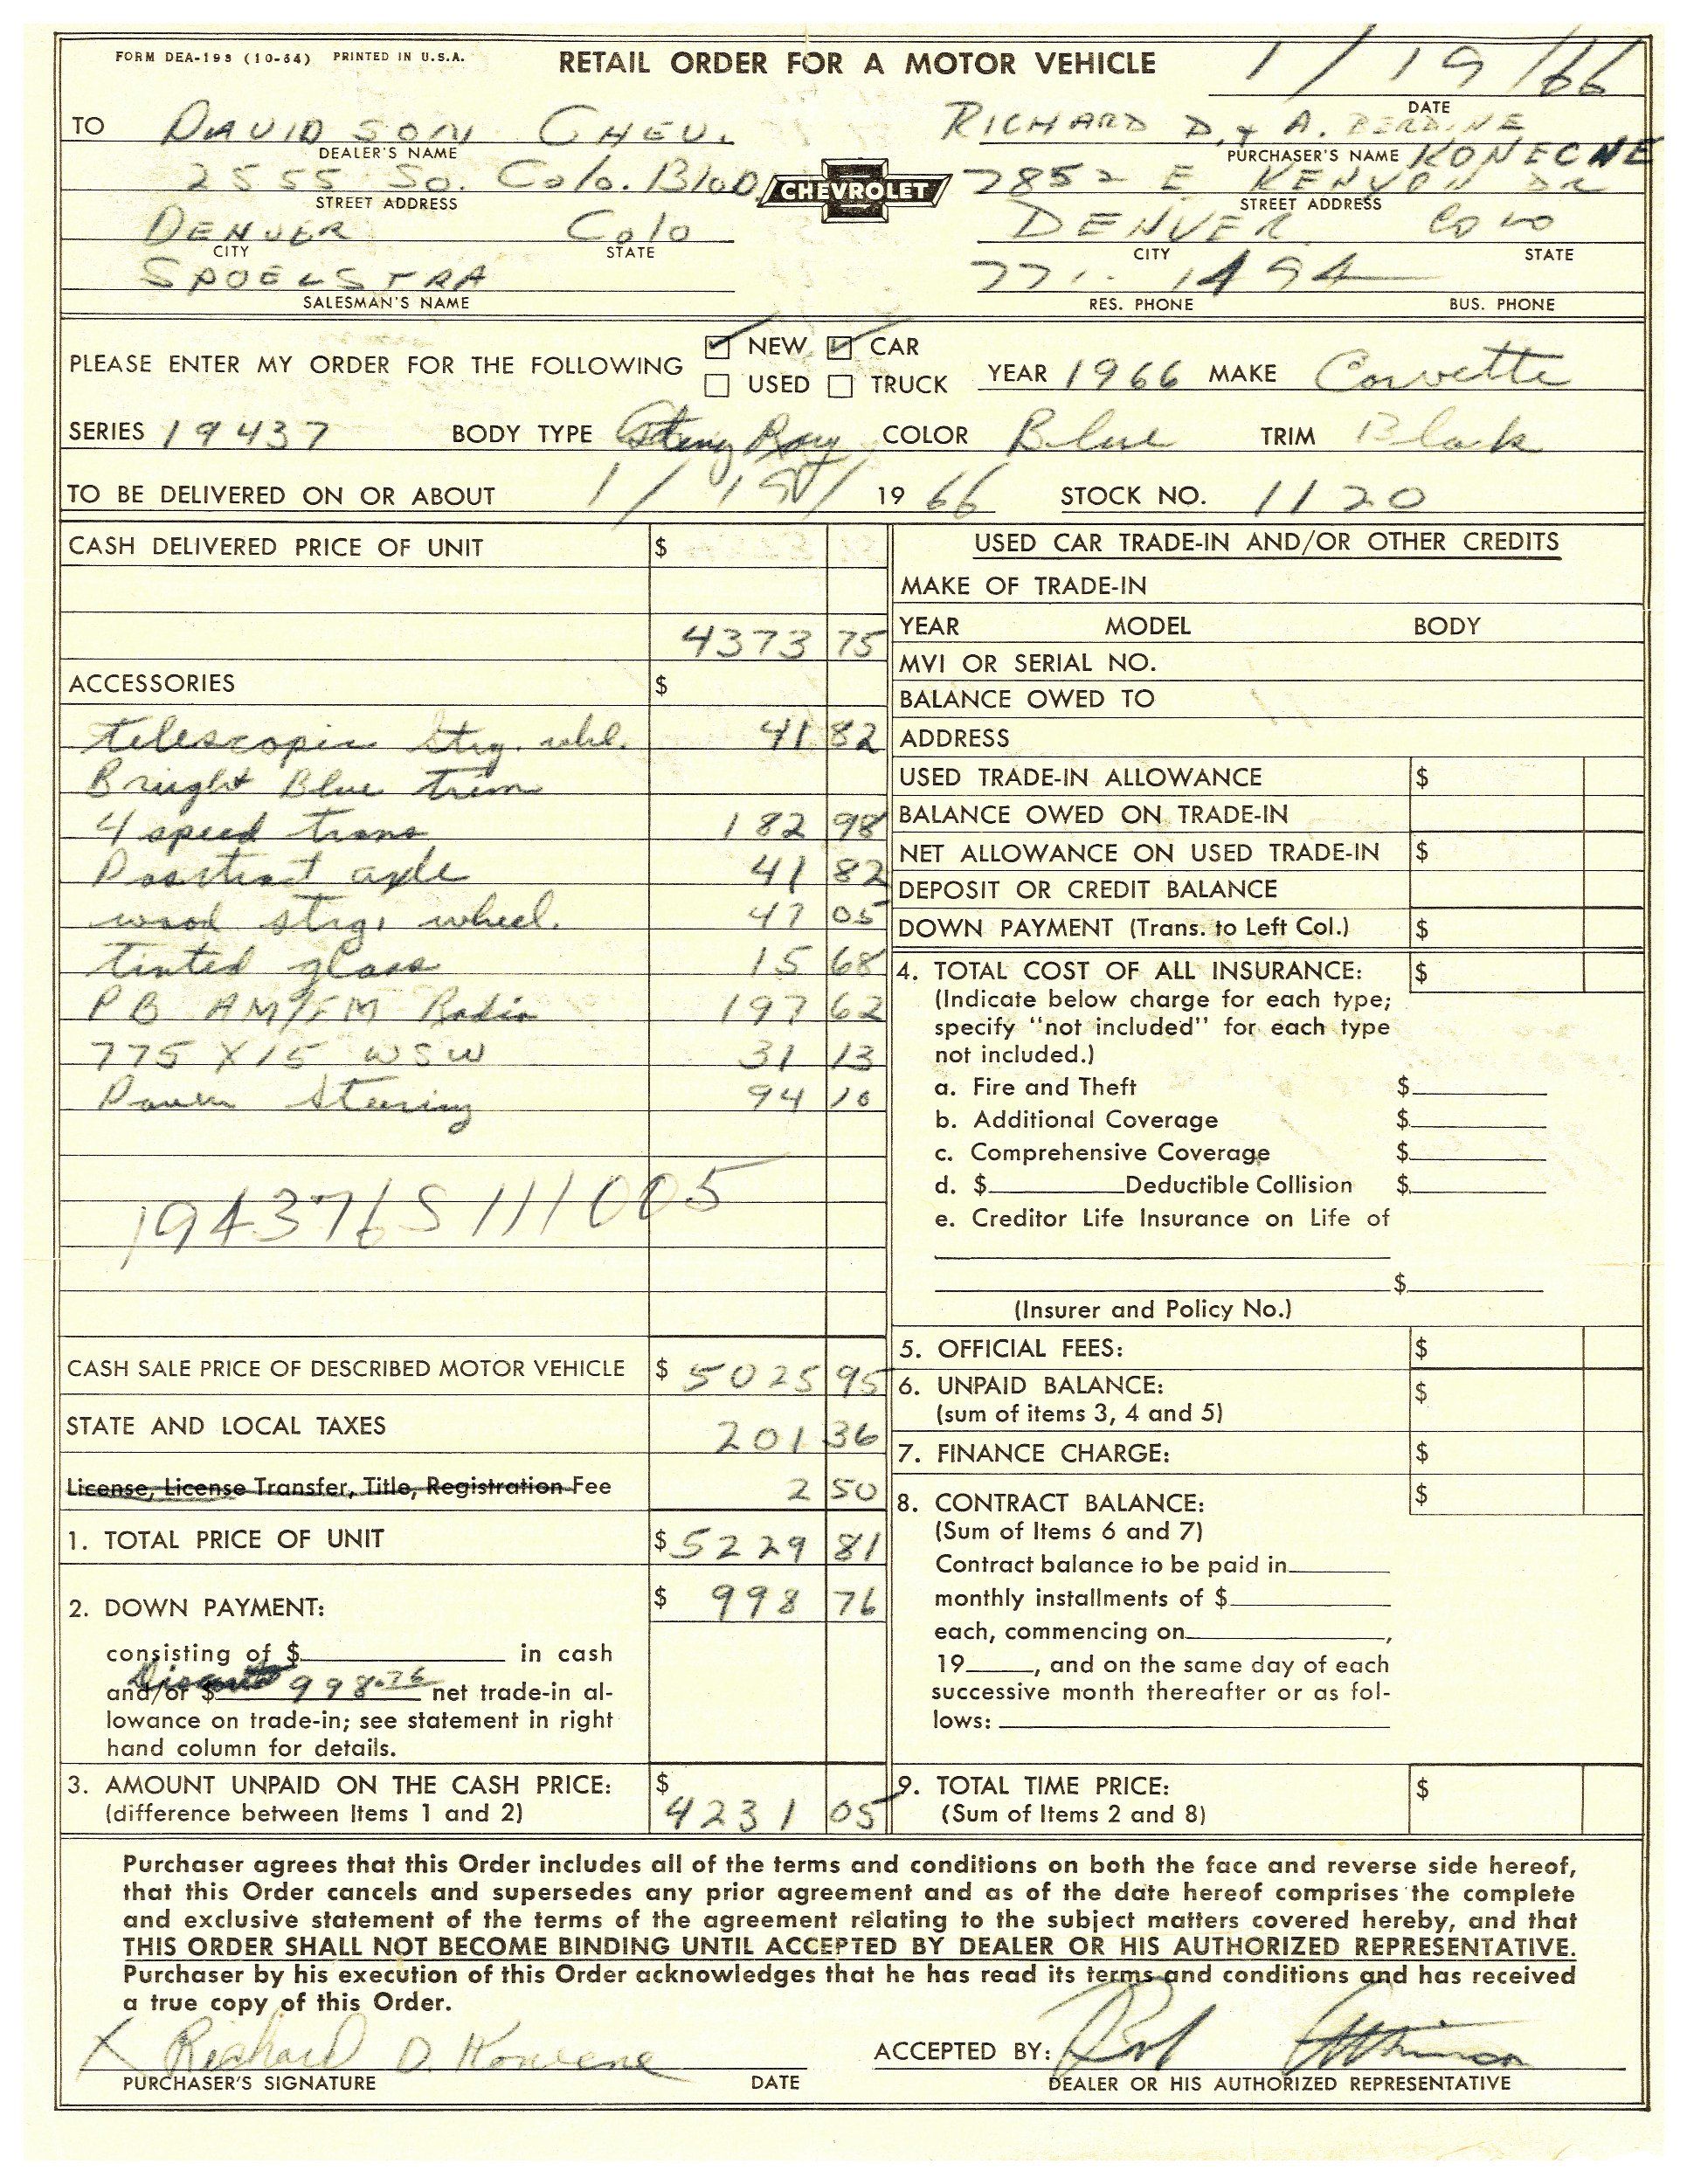 FORM DEA-193 (10-64) PRINTED IN U.S.A. RETAIL ORDER FOR A MOTOR VEHICLE 1/19/66
DATE
TO DAVIDSON CHEV. RICHARD D. & A. BERDINE
DEALER'S NAME PURCHASER'S NAME KONECNE
2555 So. Colo. Blvd. CHEVROLET 7852 E KENYON DR
STREET ADDRESS STREET ADDRESS
DENVER Colo DENVER COLO
CITY STATE CITY STATE
SPOELSTRA 771-1494
SALESMAN'S NAME RES. PHONE BUS. PHONE
PLEASE ENTER MY ORDER FOR THE FOLLOWING NEW CAR YEAR 1966 MAKE Corvette
USED TRUCK
SERIES 19437 BODY TYPE Sting Ray COLOR Blue TRIM Black
TO BE DELIVERED ON OR ABOUT 1/19/ 19 66 STOCK NO. 1120
CASH DELIVERED PRICE OF UNIT $
4373 75
ACCESSORIES $
telescopic strg. whl. 41 82
Bright Blue trim
4 speed trans 182 98
Positract axle 41 82
wood strg. wheel. 47 05
tinted glass 15 68
PB AM/FM Radio 197 62
775 X 15 WSW 31 13
Power Steering 94 10
194376S111005
CASH SALE PRICE OF DESCRIBED MOTOR VEHICLE $ 5025 95
STATE AND LOCAL TAXES 201 36
License, License Transfer, Title, Registration Fee 2 50
1. TOTAL PRICE OF UNIT $ 5229 81
2. DOWN PAYMENT: $ 998 76
consisting of $ in cash
Discount 998.76
and/or $ net trade-in al-
lowance on trade-in; see statement in right
hand column for details.
3. AMOUNT UNPAID ON THE CASH PRICE: $
(difference between Items 1 and 2) 4231 05
USED CAR TRADE-IN AND/OR OTHER CREDITS
MAKE OF TRADE-IN
YEAR MODEL BODY
MVI OR SERIAL NO.
BALANCE OWED TO
ADDRESS
USED TRADE-IN ALLOWANCE $
BALANCE OWED ON TRADE-IN
NET ALLOWANCE ON USED TRADE-IN $
DEPOSIT OR CREDIT BALANCE
DOWN PAYMENT (Trans. to Left Col.) $
4. TOTAL COST OF ALL INSURANCE: $
(Indicate below charge for each type;
specify "not included" for each type
not included.)
a. Fire and Theft $
b. Additional Coverage $
c. Comprehensive Coverage $
d. $ Deductible Collision $
e. Creditor Life Insurance on Life of
$
(Insurer and Policy No.)
5. OFFICIAL FEES: $
6. UNPAID BALANCE: $
(sum of items 3, 4 and 5)
7. FINANCE CHARGE: $
8. CONTRACT BALANCE: $
(Sum of Items 6 and 7)
Contract balance to be paid in
monthly installments of $
each, commencing on ,
19 , and on the same day of each
successive month thereafter or as fol-
lows:
9. TOTAL TIME PRICE: $
(Sum of Items 2 and 8)
Purchaser agrees that this Order includes all of the terms and conditions on both the face and reverse side hereof,
that this Order cancels and supersedes any prior agreement and as of the date hereof comprises the complete
and exclusive statement of the terms of the agreement relating to the subject matters covered hereby, and that
THIS ORDER SHALL NOT BECOME BINDING UNTIL ACCEPTED BY DEALER OR HIS AUTHORIZED REPRESENTATIVE.
Purchaser by his execution of this Order acknowledges that he has read its terms and conditions and has received
a true copy of this Order.
X Richard D. Konecne ACCEPTED BY: Bob Atkinson
PURCHASER'S SIGNATURE DATE DEALER OR HIS AUTHORIZED REPRESENTATIVE